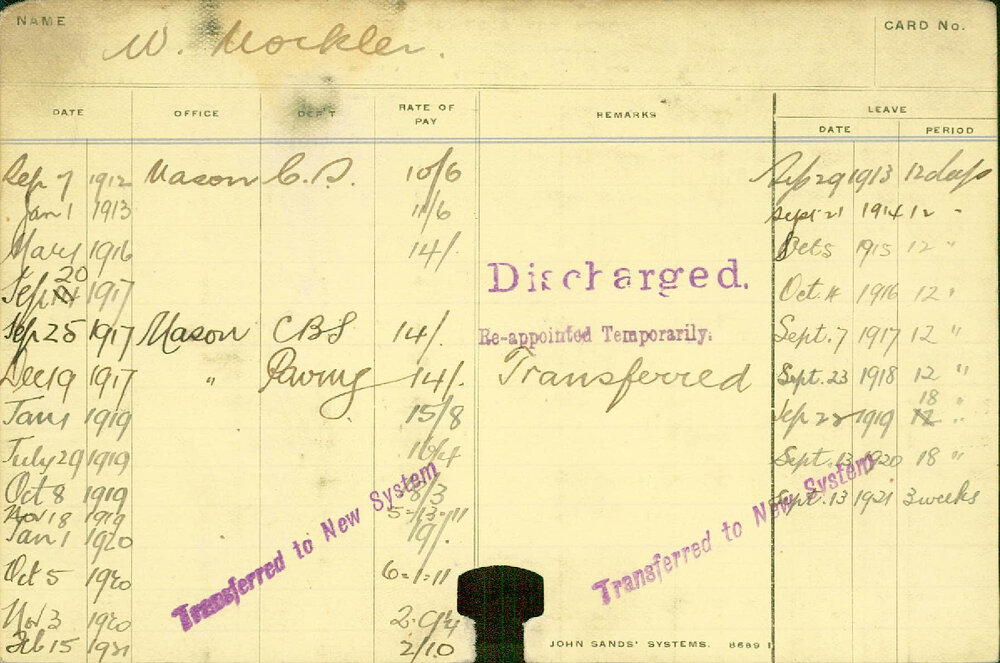 NAME
W. Mockler.
CARD No.
DATE OFFICE DEP'T RATE OF PAY REMARKS LEAVE
DATE PERIOD
Sep 7 1912 Mason C.S. 10/6 Sep 29 1913 12 days
Jan 1 1913 11/6 Sept 21 1914 12 "
Mar 1 1916 14/. Oct 5 1915 12 "
Sep 20 1917 Discharged. Oct. 1916 12 "
Sep 25 1917 Mason CBS 14/. Re-appointed Temporarily. Sept. 7 1917 12 "
Dec 19 1917 " Paving 14/. Transferred Sept. 23 1918 12 "
Jan 1 1919 15/8 Sep 22 1919 12 18 "
July 29 1919 16/4 Sept. 13 1920 18 "
Oct 8 1919 18/3 Sept. 13 1921 3 weeks
Nov 18 1919 5-13-11
Jan 1 1920 19/.
Oct 5 1920 6-1-11
Nov 3 1920
Feb 15 1921 2/10
Transferred to New System
Transferred to New System
JOHN SANDS' SYSTEMS. 8689